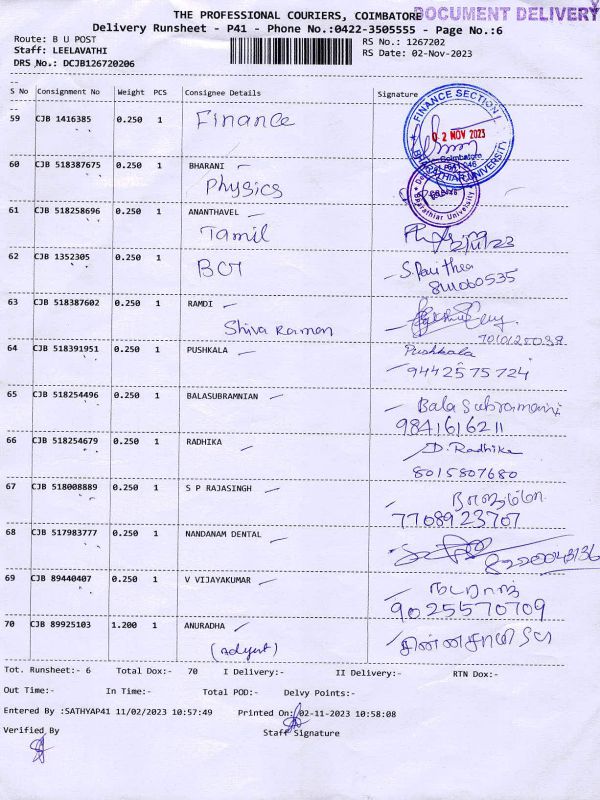 THE PROFESSIONAL COURIERS, COIMBATORE
DOCUMENT DELIVERY
Delivery Runsheet - P41 - Phone No.:0422-3505555 - Page No.:6
Route: B U POST
RS No.: 1267202
Staff: LEELAVATHI
RS Date: 02-Nov-2023
DRS No.: DCJB126720206
S No Consignment No Weight PCS Consignee Details Signature
59 CJB 1416385 0.250 1 Finance
FINANCE SECTION
02 NOV 2023
Coimbatore
BHARATHIAR UNIVERSITY
60 CJB 518387675 0.250 1 BHARANI
Physics
Bharathiar University
61 CJB 518258696 0.250 1 ANANTHAVEL
Tamil
62 CJB 1352305 0.250 1
8111060535
63 CJB 518387602 0.250 1 RAMDI
Shiva Raman
64 CJB 518391951 0.250 1 PUSHKALA Pushkala
9442575724
65 CJB 518254496 0.250 1 BALASUBRAMNIAN Bala Subramani
9841616211
66 CJB 518254679 0.250 1 RADHIKA D. Radhika
8015807680
67 CJB 518008889 0.250 1 S P RAJASINGH
7708923707
68 CJB 517983777 0.250 1 NANDANAM DENTAL
69 CJB 89440407 0.250 1 V VIJAYAKUMAR நடராஜ்
9025570709
70 CJB 89925103 1.200 1 ANURADHA
Tot. Runsheet:- 6 Total Dox:- 70 I Delivery:- II Delivery:- RTN Dox:-
Out Time:- In Time:- Total POD:- Delvy Points:-
Entered By :SATHYAP41 11/02/2023 10:57:49 Printed On: 02-11-2023 10:58:08
Verified By Staff Signature